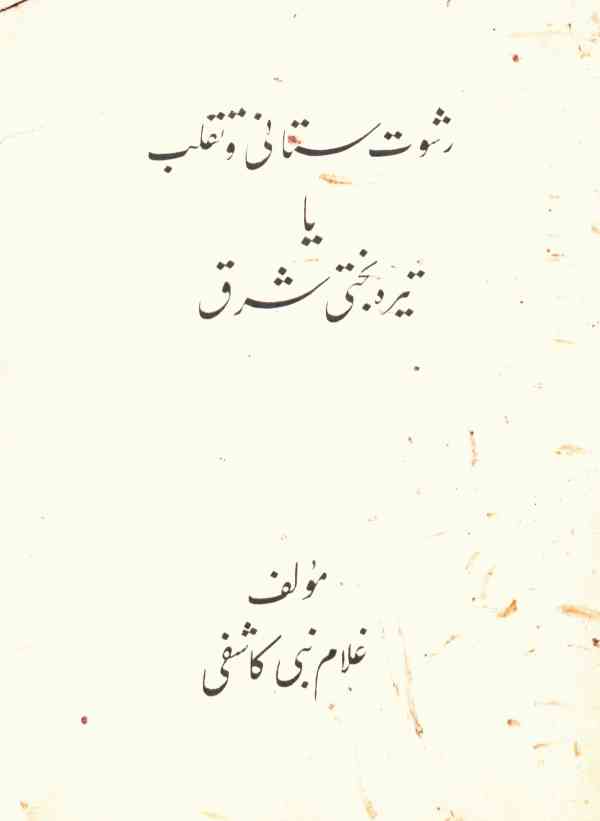 رشوت ستانی و تقلب
یا
تیره بختی شرق
مؤلف
غلام نبی کاشفی